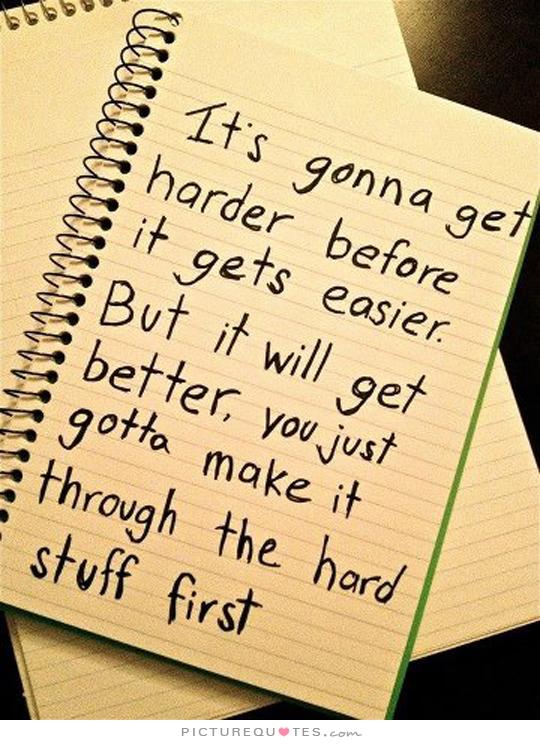 It's gonna get
harder before
it gets easier.
But it will get
better, you just
gotta make it
through the hard
stuff first
PICTUREQUOTES.com